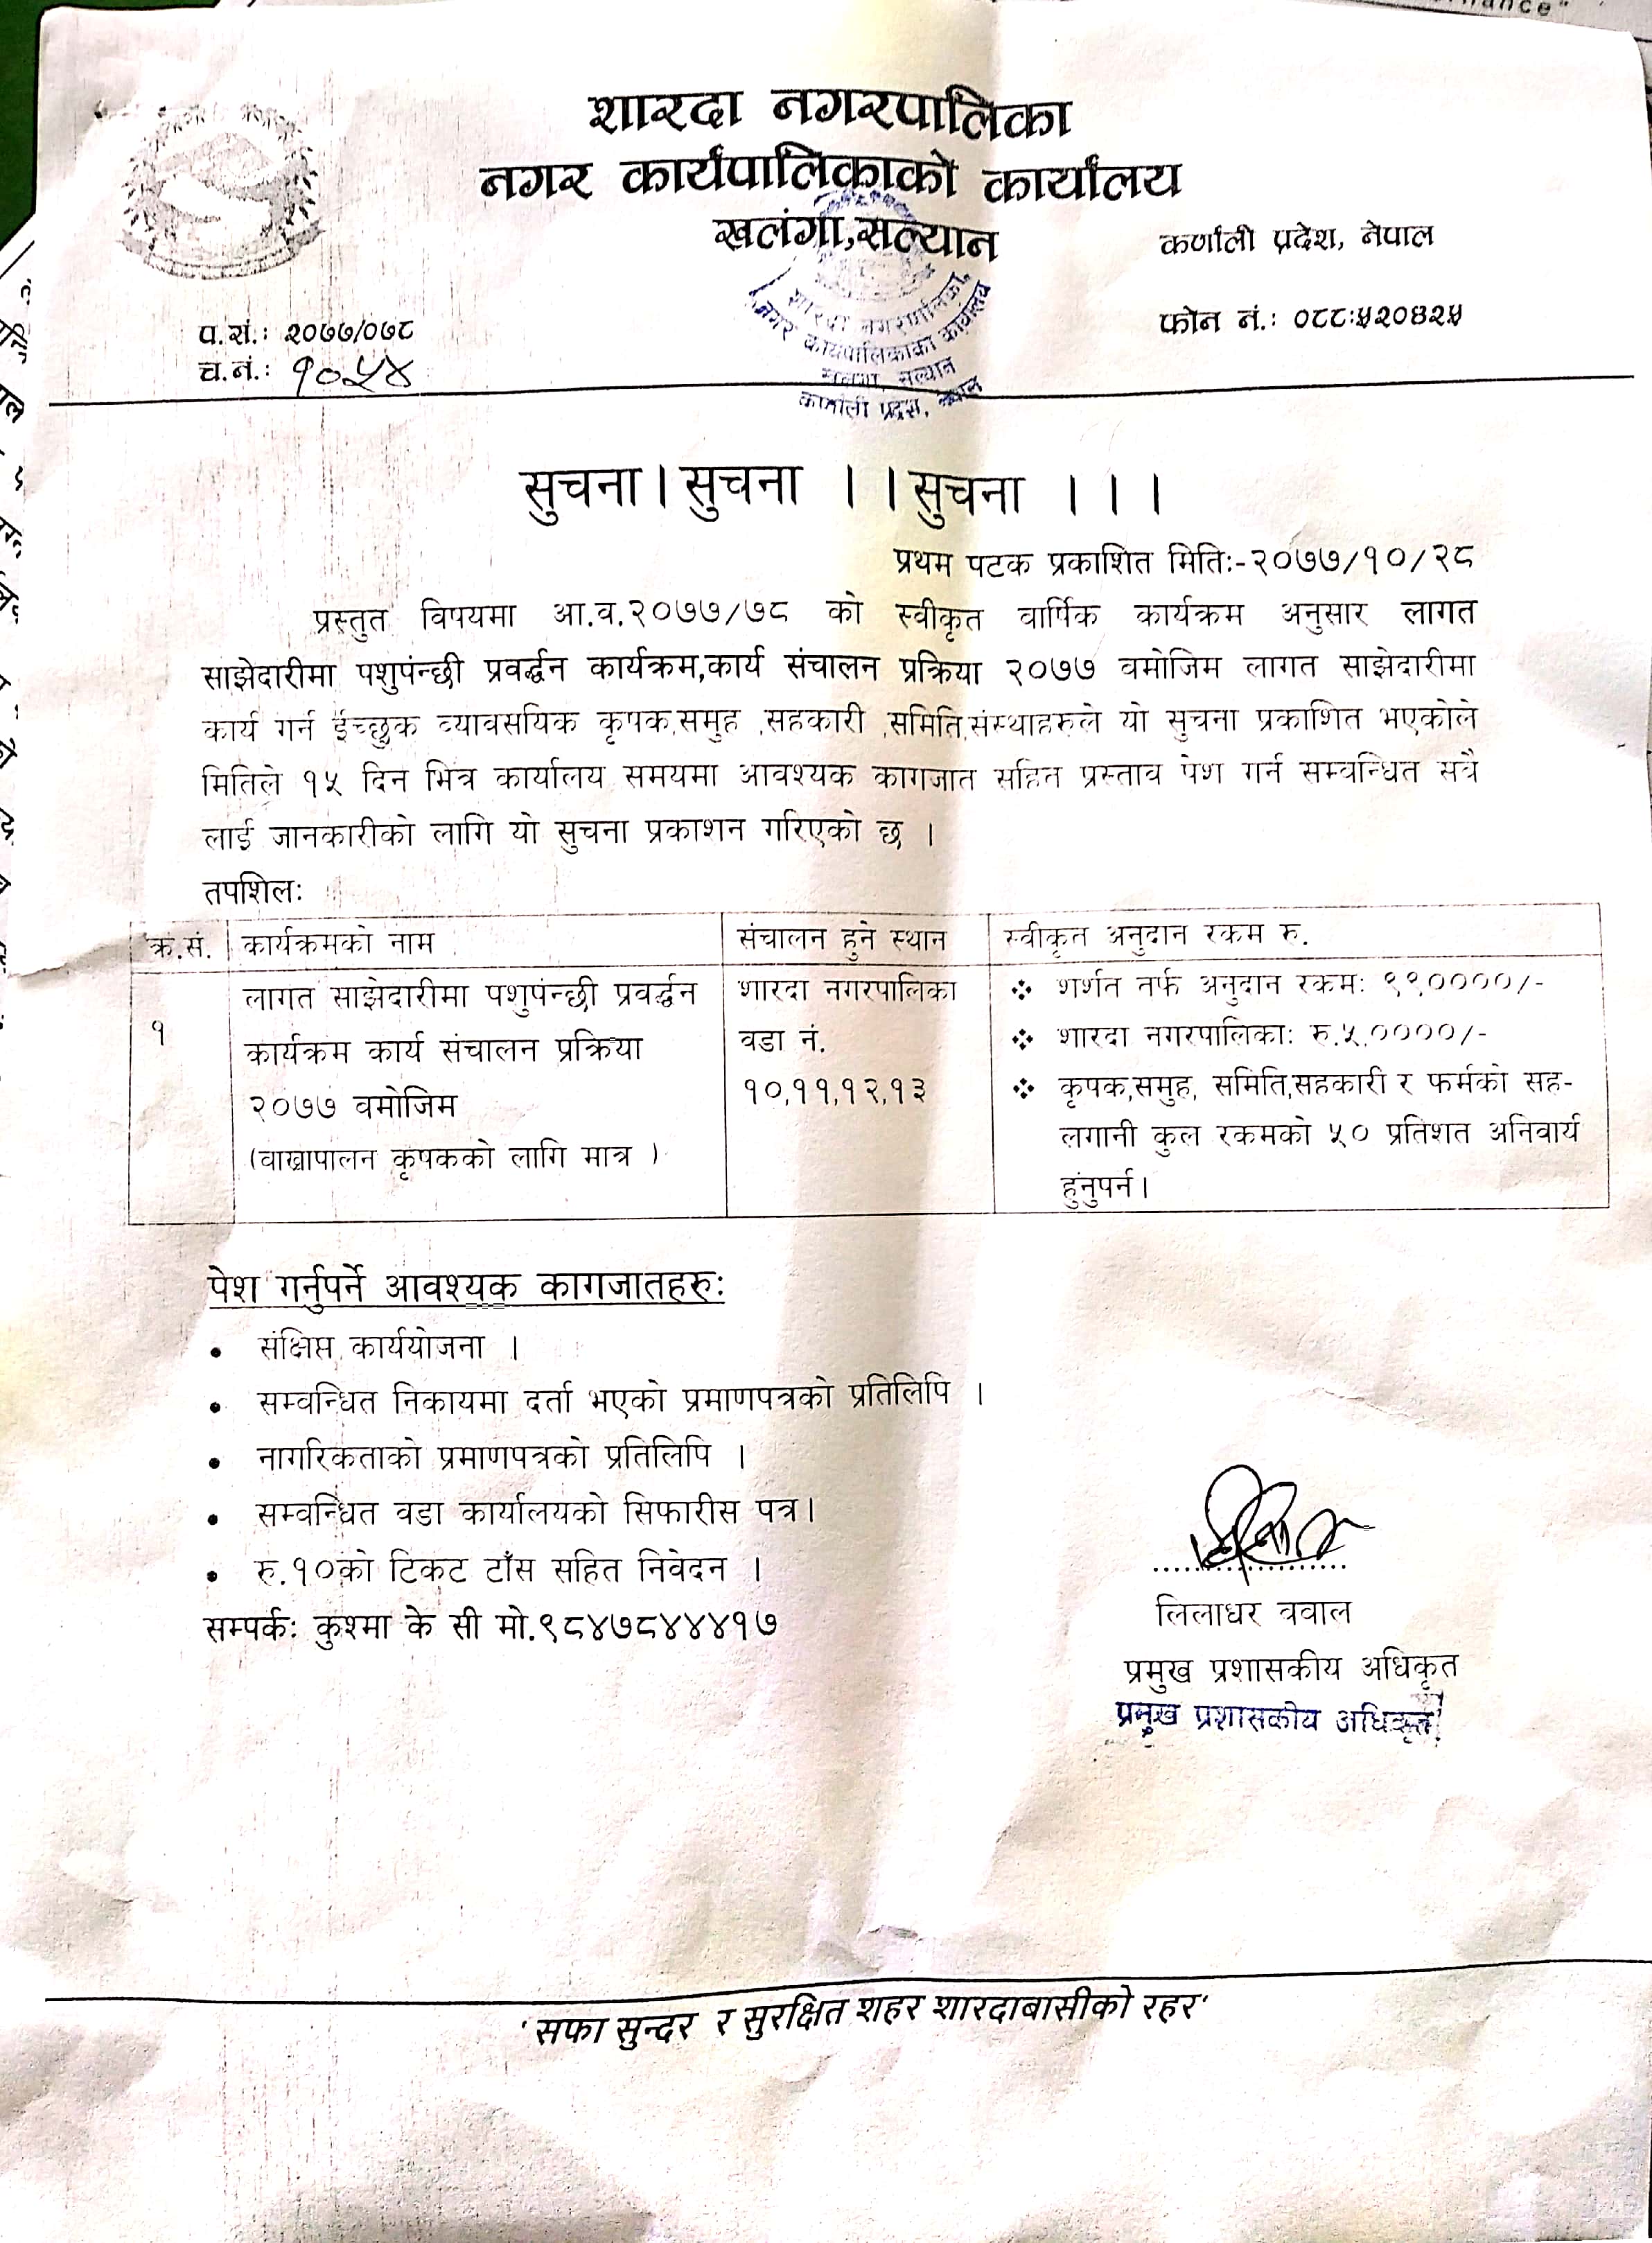 शारदा नगरपालिका
नगर कार्यपालिकाको कार्यालय
खलंगा,सल्यान
कर्णाली प्रदेश, नेपाल
प.सं.: २०७७/०७८
फोन नं.: ०८८:५२०४२५
च.नं.: १०५४
शारदा नगरपालिका
नगर कार्यपालिकाको कार्यालय
खलंगा, सल्यान
कर्णाली प्रदेश, नेपाल
सुचना । सुचना । । सुचना । । ।
प्रथम पटक प्रकाशित मितिः-२०७७/१०/२८
प्रस्तुत विषयमा आ.व.२०७७/७८ को स्वीकृत वार्षिक कार्यक्रम अनुसार लागत
साझेदारीमा पशुपंन्छी प्रवर्द्धन कार्यक्रम,कार्य संचालन प्रक्रिया २०७७ वमोजिम लागत साझेदारीमा
कार्य गर्न ईच्छुक व्यावसयिक कृषक,समुह ,सहकारी ,समिति,संस्थाहरुले यो सुचना प्रकाशित भएकोले
मितिले १५ दिन भित्र कार्यालय समयमा आवश्यक कागजात सहित प्रस्ताव पेश गर्न सम्वन्धित सवै
लाई जानकारीको लागि यो सुचना प्रकाशन गरिएको छ ।
तपशिलः
क्र.सं. कार्यक्रमको नाम संचालन हुने स्थान स्वीकृत अनुदान रकम रु.
१ लागत साझेदारीमा पशुपंन्छी प्रवर्द्धन
कार्यक्रम कार्य संचालन प्रक्रिया
२०७७ वमोजिम
(वाख्रापालन कृषकको लागि मात्र )
शारदा नगरपालिका
वडा नं.
१०,११,१२,१३
❖ शर्शत तर्फ अनुदान रकमः ९९००००/-
❖ शारदा नगरपालिकाः रु.५,००००/-
❖ कृषक,समुह, समिति,सहकारी र फर्मको सह-
लगानी कुल रकमको ५० प्रतिशत अनिवार्य
हुंनुपर्न।
पेश गर्नुपर्ने आवश्यक कागजातहरुः
• संक्षिप्त कार्ययोजना ।
• सम्वन्धित निकायमा दर्ता भएको प्रमाणपत्रको प्रतिलिपि ।
• नागरिकताको प्रमाणपत्रको प्रतिलिपि ।
• सम्वन्धित वडा कार्यालयको सिफारीस पत्र।
• रु.१०को टिकट टाँस सहित निवेदन ।
सम्पर्कः कुश्मा के सी मो.९८४७८४४४१७
लिलाधर वली
प्रमुख प्रशासकीय अधिकृत
प्रमुख प्रशासकीय अधिकृत
'सफा सुन्दर र सुरक्षित शहर शारदाबासीको रहर'